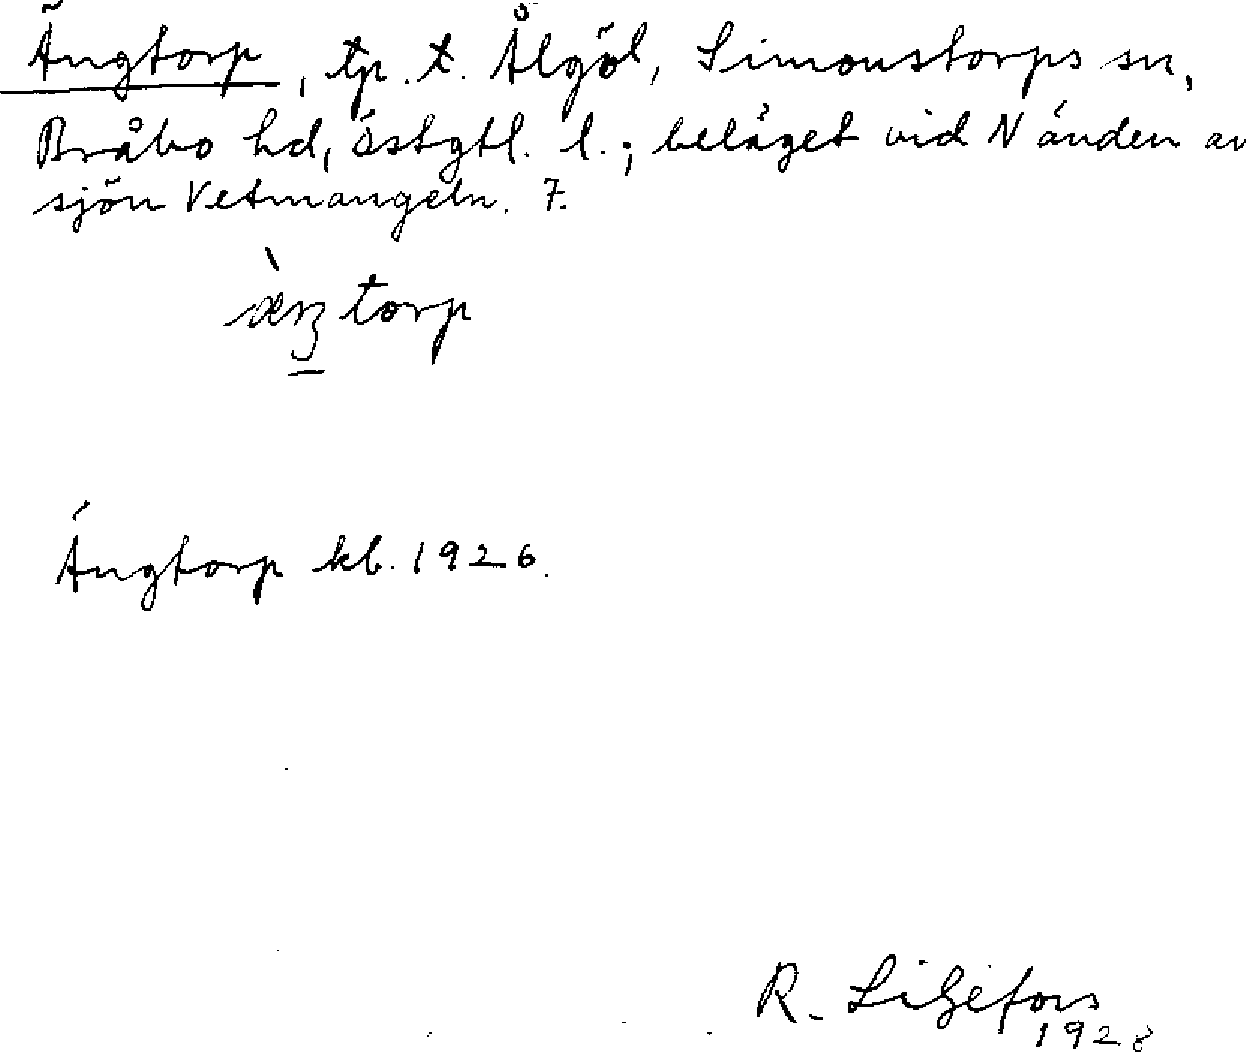 Ängtorp, tp. t. Ålgöl, Simonstorps sn,
Bråbo hd, Östgtl. l.; beläget vid N änden av
sjön Vetmangeln. 7.
æ̀ŋtorp
Ängtorp kb. 1926.
R. Liljefors
1928